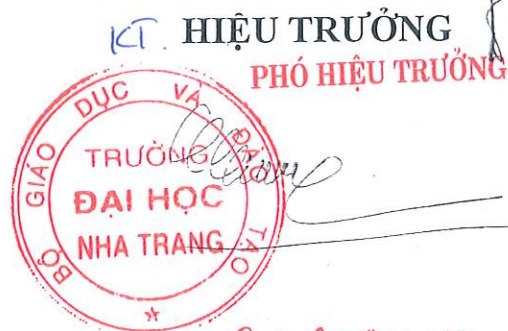 KT. HIỆU TRƯỞNG
PHÓ HIỆU TRƯỞNG
BỘ GIÁO DỤC VÀ ĐÀO TẠO
TRƯỜNG
ĐẠI HỌC
NHA TRANG